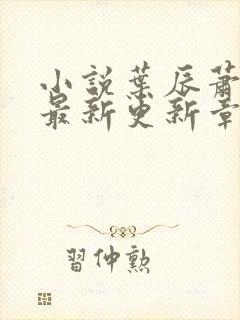 小説葉辰蕭
最新更新章
習仲勲